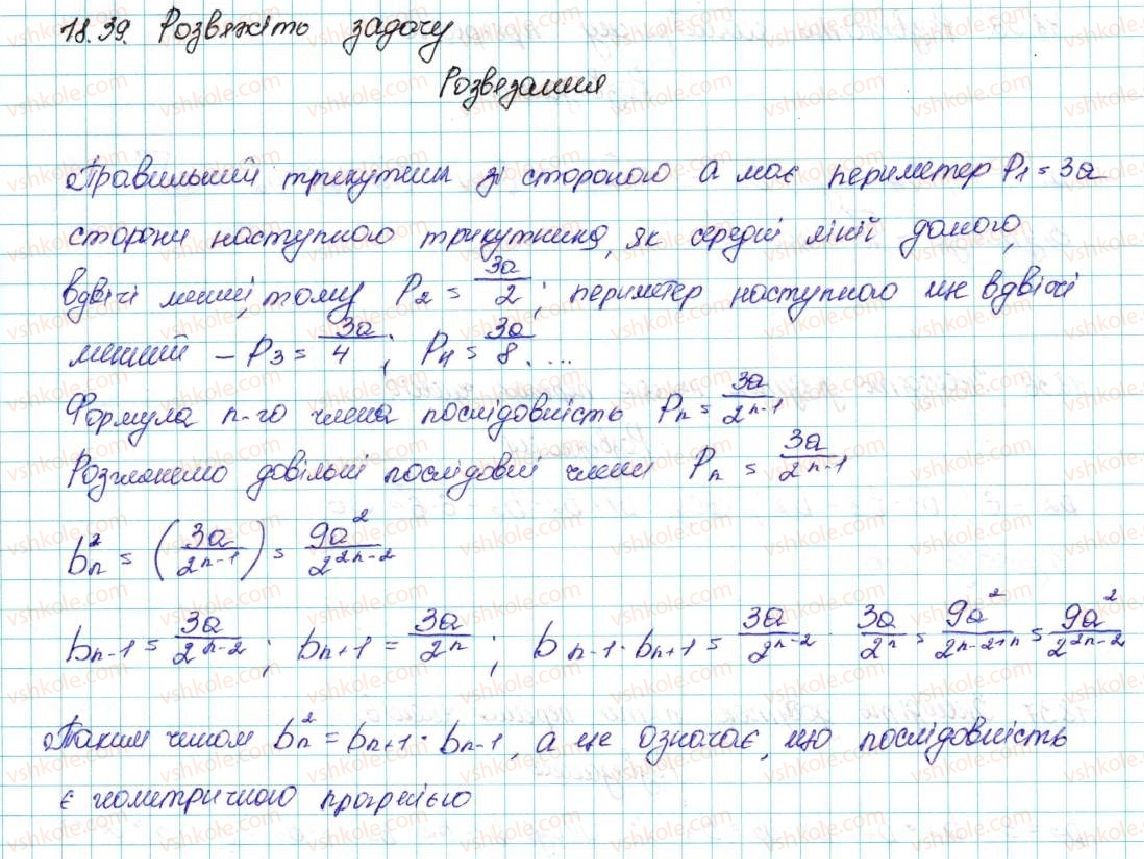 18.39. Розвяжіть задачу
Розвязання
Правильний трикутник зі стороною a має периметр P₁ = 3a
сторони наступного трикутника, як середні лінії даного,
вдвічі менші, тому P₂ = 3a/2; периметр наступного ще вдвічі
менший – P₃ = 3a/4; P₄ = 3a/8. ...
Формула n-го члена послідовність Pₙ = 3a/2ⁿ⁻¹
Розглянемо довільні послідовні члени Pₙ = 3a/2ⁿ⁻¹
bₙ² = (3a/2ⁿ⁻¹) = 9a²/2²ⁿ⁻²
bₙ₋₁ = 3a/2ⁿ⁻²; bₙ₊₁ = 3a/2ⁿ; bₙ₋₁ · bₙ₊₁ = 3a/2ⁿ⁻² · 3a/2ⁿ = 9a²/2ⁿ⁻²⁺ⁿ = 9a²/2²ⁿ⁻²
Таким чином bₙ² = bₙ₊₁ · bₙ₋₁, а це означає, що послідовність
є геометричною прогресією